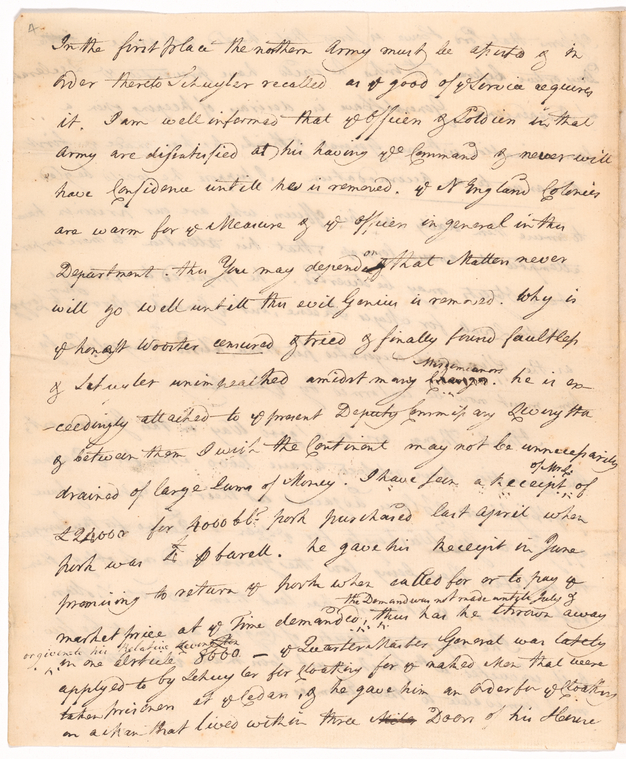 In the first place the northern Army must be apisted & in
order thereto Schuyler recalled as ye good of ye Service requires
it. I am well informed that ye Officers & Soldiers in that
Army are dissatisfied at his having ye Command & never will
have Confidence untill he is removed. ye N England Colonies
are warm for ye Measure & ye officers in general in this
Department. this You may depend on that Matters never
will go well untill this evil Genius is removed. Why is
ye honest Wooster censured & tried & finally found faultless
& Schuyler unimpeached amidst many Misdemeanors. he is ex-
-ceedingly attached to ye present Deputy Commissary Livingston
& between them I wish the Continent may not be unnecessarily
drained of large Sums of Money. I have seen a Receipt of Mr L of
£24000 for 4000 bbls pork purchased last April when
pork was £4 ⅌ barell. he gave his Receipt in June
promising to return ye pork when called for or to pay ye
market price at ye Time demanded, the Demand was not made untill July & thus has he thrown away
or given to his Relative
in one Article 8000 — ye Quarter Master General was lately
applyed to by Schuyler for Cloathing for ye naked Men that were
taken prisoners at ye Cedars, & he gave him an order for ye Cloathing
on a Man that lived within three Doors of his House